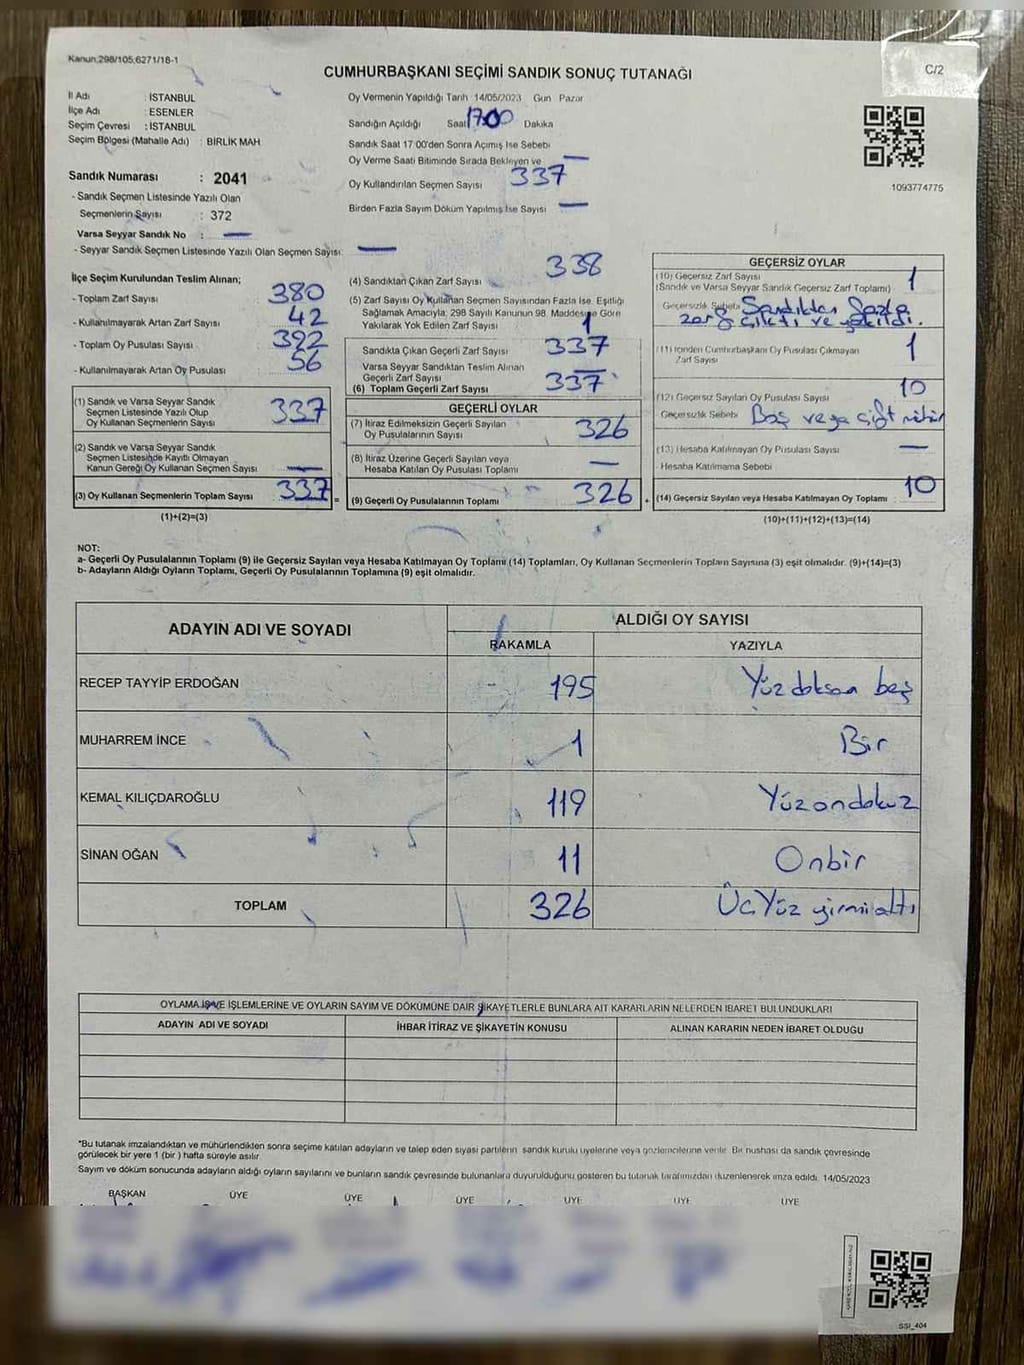 Kanun.298/105,6271/18-1
CUMHURBAŞKANI SEÇİMİ SANDIK SONUÇ TUTANAĞI
C/2
İl Adı : İSTANBUL
İlçe Adı : ESENLER
Seçim Çevresi : İSTANBUL
Seçim Bölgesi (Mahalle Adı) : BİRLİK MAH
Sandık Numarası : 2041
- Sandık Seçmen Listesinde Yazılı Olan
Seçmenlerin Sayısı : 372
Varsa Seyyar Sandık No : —
- Seyyar Sandık Seçmen Listesinde Yazılı Olan Seçmen Sayısı: —
Oy Vermenin Yapıldığı Tarih 14/05/2023 Gün Pazar
Sandığın Açıldığı Saat 17:00 Dakika
Sandık Saat 17 00'den Sonra Açımış İse Sebebi
Oy Verme Saati Bitiminde Sırada Bekleyen ve —
Oy Kullandırılan Seçmen Sayısı 337
Birden Fazla Sayım Döküm Yapılmış İse Sayısı —
1093774775
İlçe Seçim Kurulundan Teslim Alınan;
- Toplam Zarf Sayısı 380
- Kullanılmayarak Artan Zarf Sayısı 42
- Toplam Oy Pusulası Sayısı 392
- Kullanılmayarak Artan Oy Pusulası 56
(1) Sandık ve Varsa Seyyar Sandık
Seçmen Listesinde Yazılı Olup
Oy Kullanan Seçmenlerin Sayısı 337
(2) Sandık ve Varsa Seyyar Sandık
Seçmen Listesinde Kayıtlı Olmayan
Kanun Gereği Oy Kullanan Seçmen Sayısı —
(3) Oy Kullanan Seçmenlerin Toplam Sayısı 337 =
(1)+(2)=(3)
(4) Sandıktan Çıkan Zarf Sayısı 338
(5) Zarf Sayısı Oy Kullanan Seçmen Sayısından Fazla İse, Eşitliği
Sağlamak Amacıyla, 298 Sayılı Kanunun 98. Maddesine Göre
Yakılarak Yok Edilen Zarf Sayısı 1
Sandıkta Çıkan Geçerli Zarf Sayısı 337
Varsa Seyyar Sandıktan Teslim Alınan
Geçerli Zarf Sayısı —
(6) Toplam Geçerli Zarf Sayısı 337
GEÇERLİ OYLAR
(7) İtiraz Edilmeksizin Geçerli Sayılan
Oy Pusulalarının Sayısı 326
(8) İtiraz Üzerine Geçerli Sayılan veya
Hesaba Katılan Oy Pusulası Toplamı —
(9) Geçerli Oy Pusulalarının Toplamı 326 +
GEÇERSİZ OYLAR
(10) Geçersiz Zarf Sayısı
(Sandık ve Varsa Seyyar Sandık Geçersiz Zarf Toplamı) 1
Geçersizlik Sebebi Sandıktan fazla
zarf çıktı ve yakıldı.
(11) İçinden Cumhurbaşkanı Oy Pusulası Çıkmayan
Zarf Sayısı 1
(12) Geçersiz Sayılan Oy Pusulası Sayısı 10
Geçersizlik Sebebi Boş veya çift mühür
(13) Hesaba Katılmayan Oy Pusulası Sayısı —
- Hesaba Katılmama Sebebi
(14) Geçersiz Sayılan veya Hesaba Katılmayan Oy Toplamı 10
(10)+(11)+(12)+(13)=(14)
NOT:
a- Geçerli Oy Pusulalarının Toplamı (9) ile Geçersiz Sayılan veya Hesaba Katılmayan Oy Toplamı (14) Toplamları, Oy Kullanan Seçmenlerin Toplam Sayısına (3) eşit olmalıdır. (9)+(14)=(3)
b- Adayların Aldığı Oyların Toplamı, Geçerli Oy Pusulalarının Toplamına (9) eşit olmalıdır.
ADAYIN ADI VE SOYADI ALDIĞI OY SAYISI
RAKAMLA YAZIYLA
RECEP TAYYİP ERDOĞAN 195 Yüzdoksan beş
MUHARREM İNCE 1 Bir
KEMAL KILIÇDAROĞLU 119 Yüzondokuz
SİNAN OĞAN 11 Onbir
TOPLAM 326 ÜçYüz yirmialtı
OYLAMA İŞ VE İŞLEMLERİNE VE OYLARIN SAYIM VE DÖKÜMÜNE DAİR ŞİKAYETLERLE BUNLARA AİT KARARLARIN NELERDEN İBARET BULUNDUKLARI
ADAYIN ADI VE SOYADI İHBAR İTİRAZ VE ŞİKAYETİN KONUSU ALINAN KARARIN NEDEN İBARET OLDUĞU
*Bu tutanak imzalandıktan ve mühürlendikten sonra seçime katılan adayların ve talep eden siyasi partilerin sandık kurulu üyelerine veya gözlemcilerine verilir. Bir nüshası da sandık çevresinde
görülecek bir yere 1 (bir ) hafta süreyle asılır.
Sayım ve döküm sonucunda adayların aldığı oyların sayılarını ve bunların sandık çevresinde bulunanlara duyurulduğunu gösteren bu tutanak tarafımızdan düzenlenerek imza edildi. 14/05/2023
BAŞKAN ÜYE ÜYE ÜYE ÜYE ÜYE ÜYE
SSI_404